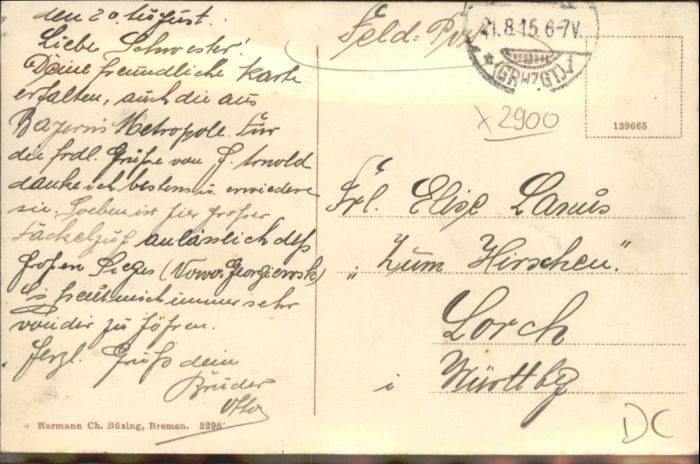 den 20. August.
Liebe Schwester!
Deine freundliche Karte
erhalten, auch die aus
Bayerns Metropole. Für
die frdl. Grüße von J. Arnold
danke ich bestens u. erwiedere
sie. Soeben ist hier großer
Fackelzug anlässlich des
großen Sieges (Nowo Georgiewsk)
freut mich immer sehr
von dir zu hören.
Herzl. Gruß dein
Bruder
Otto
Hermann Ch. Büsing, Bremen. 3298
Feld-Post
21.8.15.6-7V.
x2900
139665
Frl. Elise Lanus
„Zum Hirschen"
Lorch
i Württbg
DC